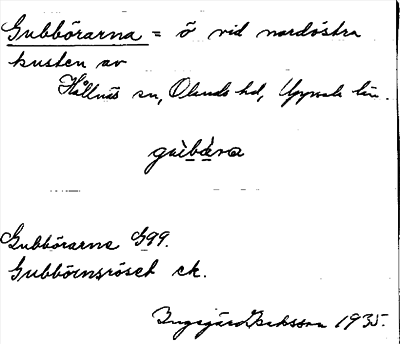 Gubbörarna = ö vid nordöstra
kusten av
Hållnäs sn, Olands hd, Uppsala län.
Gubbörarne G99.
Gubbörnsröset ek.
Ingegärd Jacksson 1935.